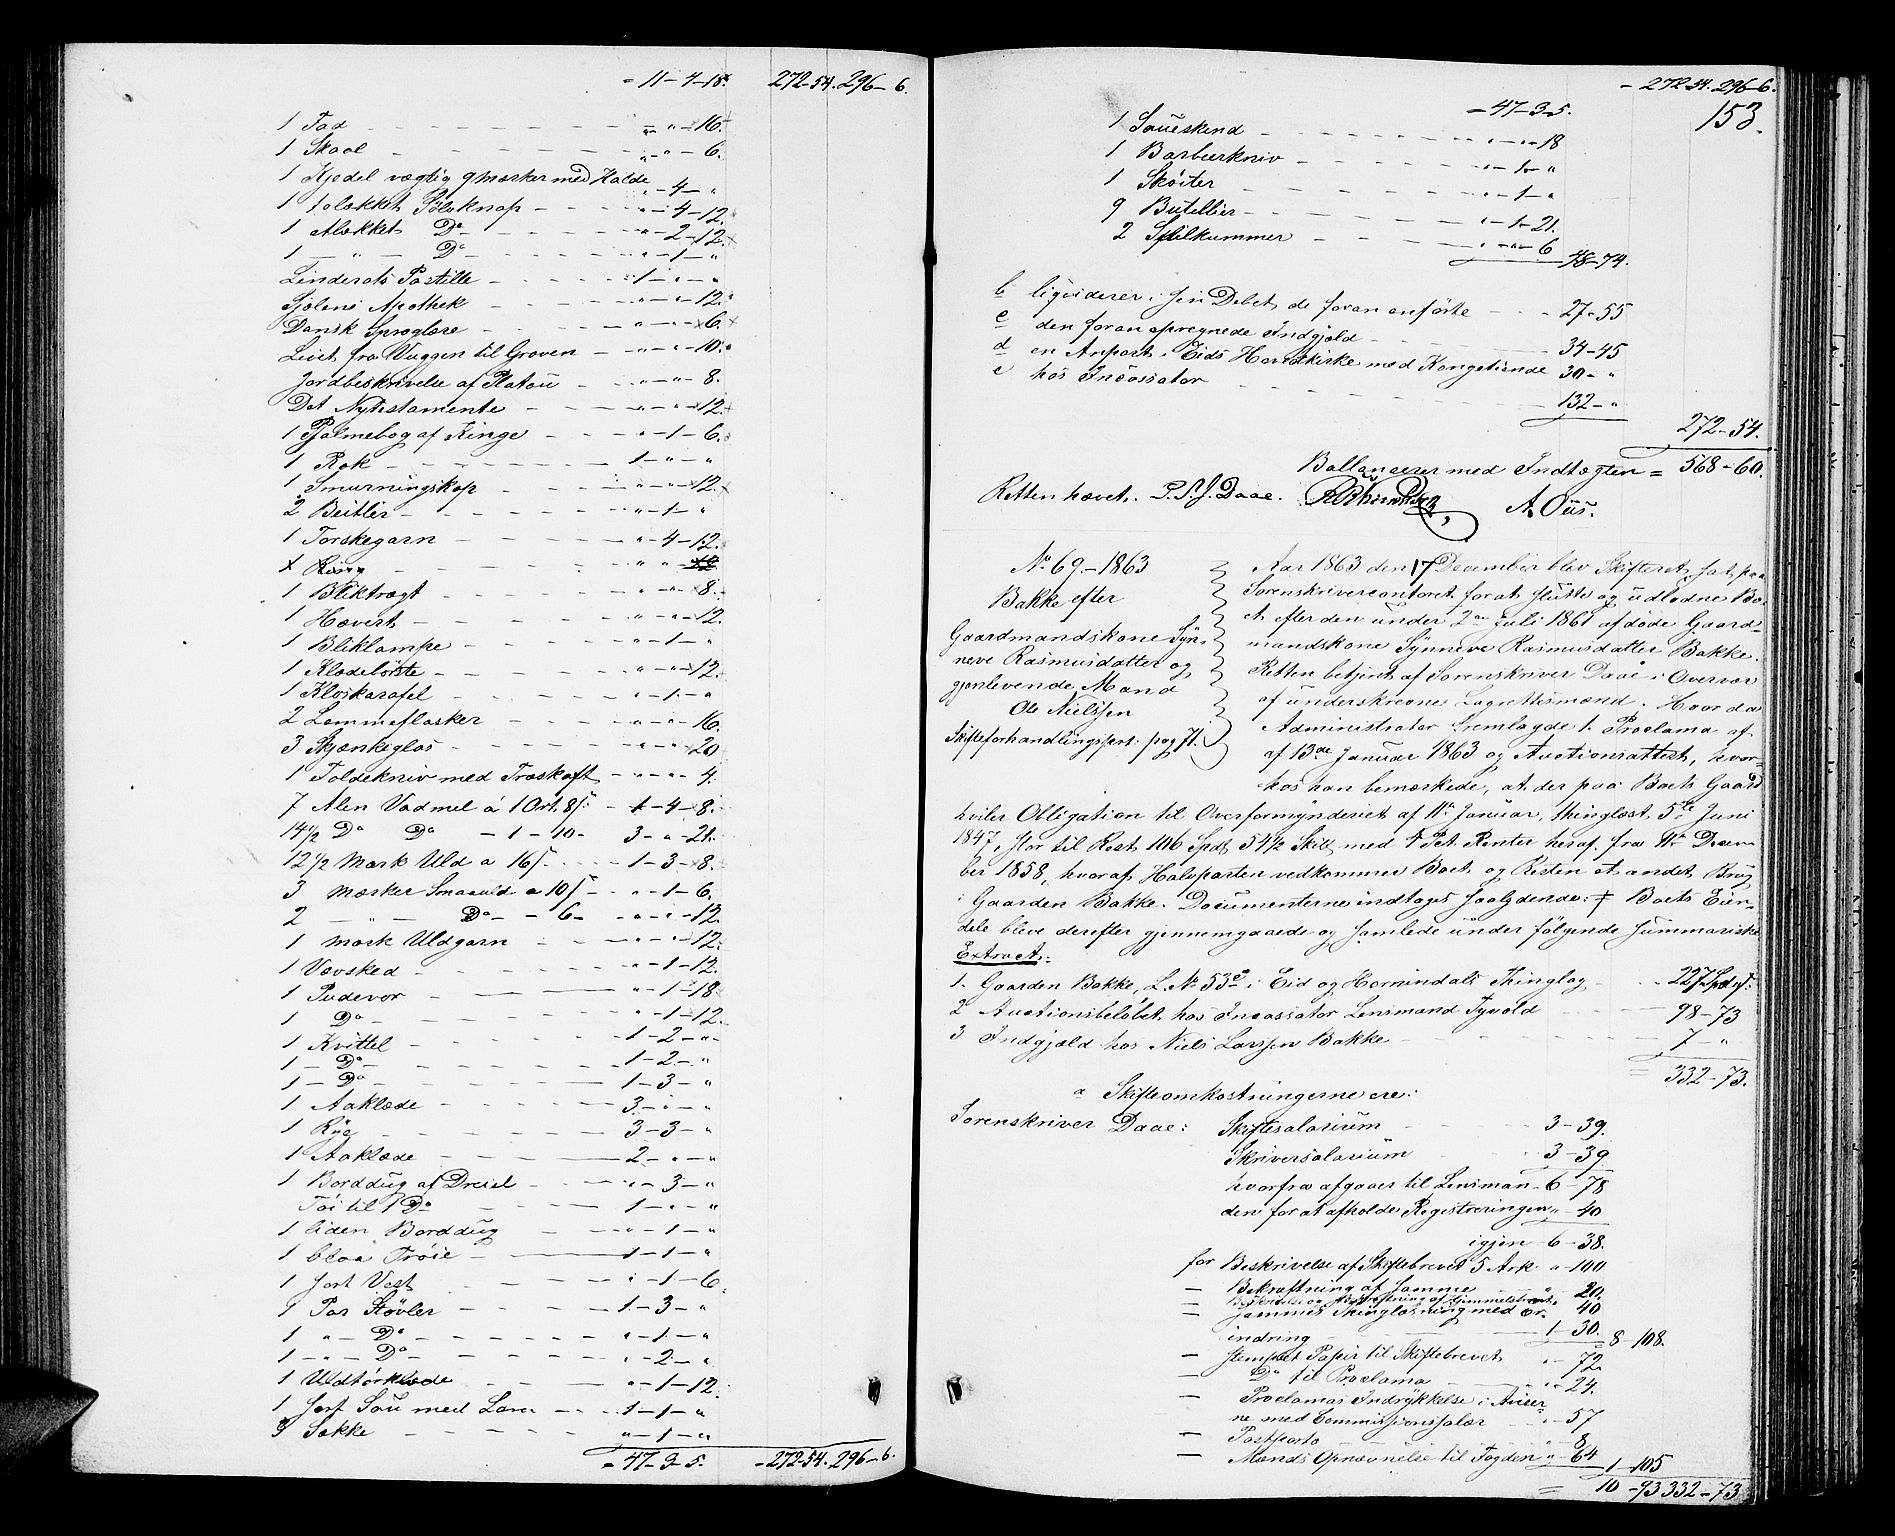 = 11 - 4 - 18. 272-54. 296 - 6.
1 Fad - " - " - 16.
1 Skaal - " - " - 6.
1 Kjedel vægtig 9 Mærker med Halde " - 4 - "
1 Sølvknap - " - 4 - 12.
1 Do - " - 2 - 12.
1 - " - Do - " - 1 - "
Linderots Postille - 1 - " - "
Sjelens Apothek " - " - 12.
Dansk Sproglære - " - " - 6.
Livet fra Vuggen til Graven - " - " - 10.
Jordbeskrivelse af Platou - " - " - 8.
Det Nytestamente - " - " - 12.
1 Psalmebog af Kingo - " - 1 - 6.
1 Rok - 1 - " - "
1 Smurningskop - " - " - 12.
2 Beitler - " - 1 - "
1 Torskegarn - " - 4 - 12.
1 Bliktragt - " - " - 8.
1 Hævert - " - " - 12.
1 Bliklampe - " - 1 - "
1 Klædebørste - " - " - 12.
1 Klokarafel - " - 1 - "
2 Lommeflasker - " - " - 16.
3 Skjænkeglas - " - " - 20
1 Toldekniv med Træskaft - " - " - 4.
7 Alen Vadmel á 1 Ort. 8 ß - 1 - 4 - 8.
14½ Do Do - 1 - 10 - 3 - " - 21.
12½ Mark Uld a 16 ß 1 - 3 - 8.
3 Mærker Smaauld a 10 ß - " - 1 - 6.
2 - " - Do - - 6 - " - " - 12.
1 Mark Uldgarn " - " - 12.
1 Vævsked - " - 1 - 12.
1 Pudevor - " - 1 - 18
1 Do - " - 1 - 12.
1 Kvittel - 1 - 2 - "
1 - Do - 1 - 2 - "
1 - Do - 1 - 3 - "
1 Aaklæde - 3 - " - "
1 Rye - 3 - 3 - "
1 Aaklæde - 2 - " - "
1 Borddug af Dreiel - " - 3 - "
Tøi til 1 Do 1 - " - "
1 liden Borddug " - 1 - "
1 blaa Trøie - 1 - 1 - "
1 sort Vest " - 1 - 6.
1 Par Støvler - 1 - 3 - "
1 " - Do - " - 1 - "
1 - " - Do - " - 2 - "
1 Uldtørklæde - " - 1 - 12.
1 sort Sau med Lam - 1 - 1 - "
Sække - " - 1 - "
= 47 - 3 - 5. - 272-54. 296 - 6.
- 272-54. 296-6.
153.
- 47 - 3 - 5.
1 Saueskind - " - " - 18
1 Barbeerkniv - " - 1 - "
1 Skøiter - " - 1 - "
9 Buteller - " - 1 - 21.
2 Spilkummer - " - " - 6 48 - 74.
b liquiderer i sin Debet de foran anførte - 27 - 55
c den foran opregnede Indgjæld - 34 - 45
d en Anpart i Eids Hovedkirke med Kongetiende 30 - "
e hos Incassator 132 - "
272 - 54.
Ballancerer med Indtægten = 568 - 60.
Retten hævet. L. P. J. Daae. A. Ous.
No 69. - 1863
Bakke efter
Gaardmandskone Syn-
neve Rasmusdatter og
gjenlevende Mand
Ole Nielssen
Skifteforhandlingsprot: pag 71.
Aar 1863 den 17 December blev Skifteret sat paa
Sorenskrivercontoret for at slutte og udlodne Bo-
et efter den under 2den Juli 1861 afdøde Gaard-
mandskone Synneve Rasmusdatter Bakke.
Retten betjent af Sorenskriver Daae i Overvær
af underskrevne Lagrettesmænd. Hvor da
Administrator fremlagde 1. Proclama af
af 13de Januar 1863 og Auctionsattest, hvor-
hos han bemærkede, at der paa Boets Gaard
hviler Obligation til Overformynderiet af 11te Januar, thinglæst 5te Juni
1847, stor til Rest 106 Spd 54½ Skill med 4 Pct. Renter heraf fra 11te Decem-
ber 1858, hvoraf Halvparten vedkommer Boet og Resten et andet Brug
i Gaarden Bakke. Documenterne indtages saalydende: ƚ Boets Eien-
dele bleve derefter gjennemgaaede og samlede under følgende summariske
Extract:
1. Gaarden Bakke, L. No 53a i Eid og Hornindals Thinglag - 227 Spd ß
2 Auctionsbeløbet hos Incassator Lensmand Myvold 98 - 73
3 Indgjæld hos Niels Larssen Bakke - 7 - "
= 332 - 73.
a Skifteomkostningerne ere:
Sorenskriver Daae: Skiftesalarium 3 - 39.
Skriversalarium 3 - 39
6 - 78
hvorfra afgaaer til Lensman-
den for at afholde Registreringen " - 40
igjen 6 - 38.
for Beskrivelse af Skiftebrevet 5 Ark " - 100
- Bekræftning af Samme " - 20.
- Beskrivelse og Bekræftning af Gjenpartsbrevet " 40
- Sammes Thinglæsning med Er-
indring 1 - 30. 8 - 108.
- stemplet Papir til Skiftebrevet " - 72
- Do til Proclama " - 24.
- Proclamas Indrykkelse i Aviser-
ne med Commissionssalær " - 57
- Postporto " - 8
- Mænds Opnævnelse til Fogden " - 64 1 - 105
= 10 - 93 332 - 73